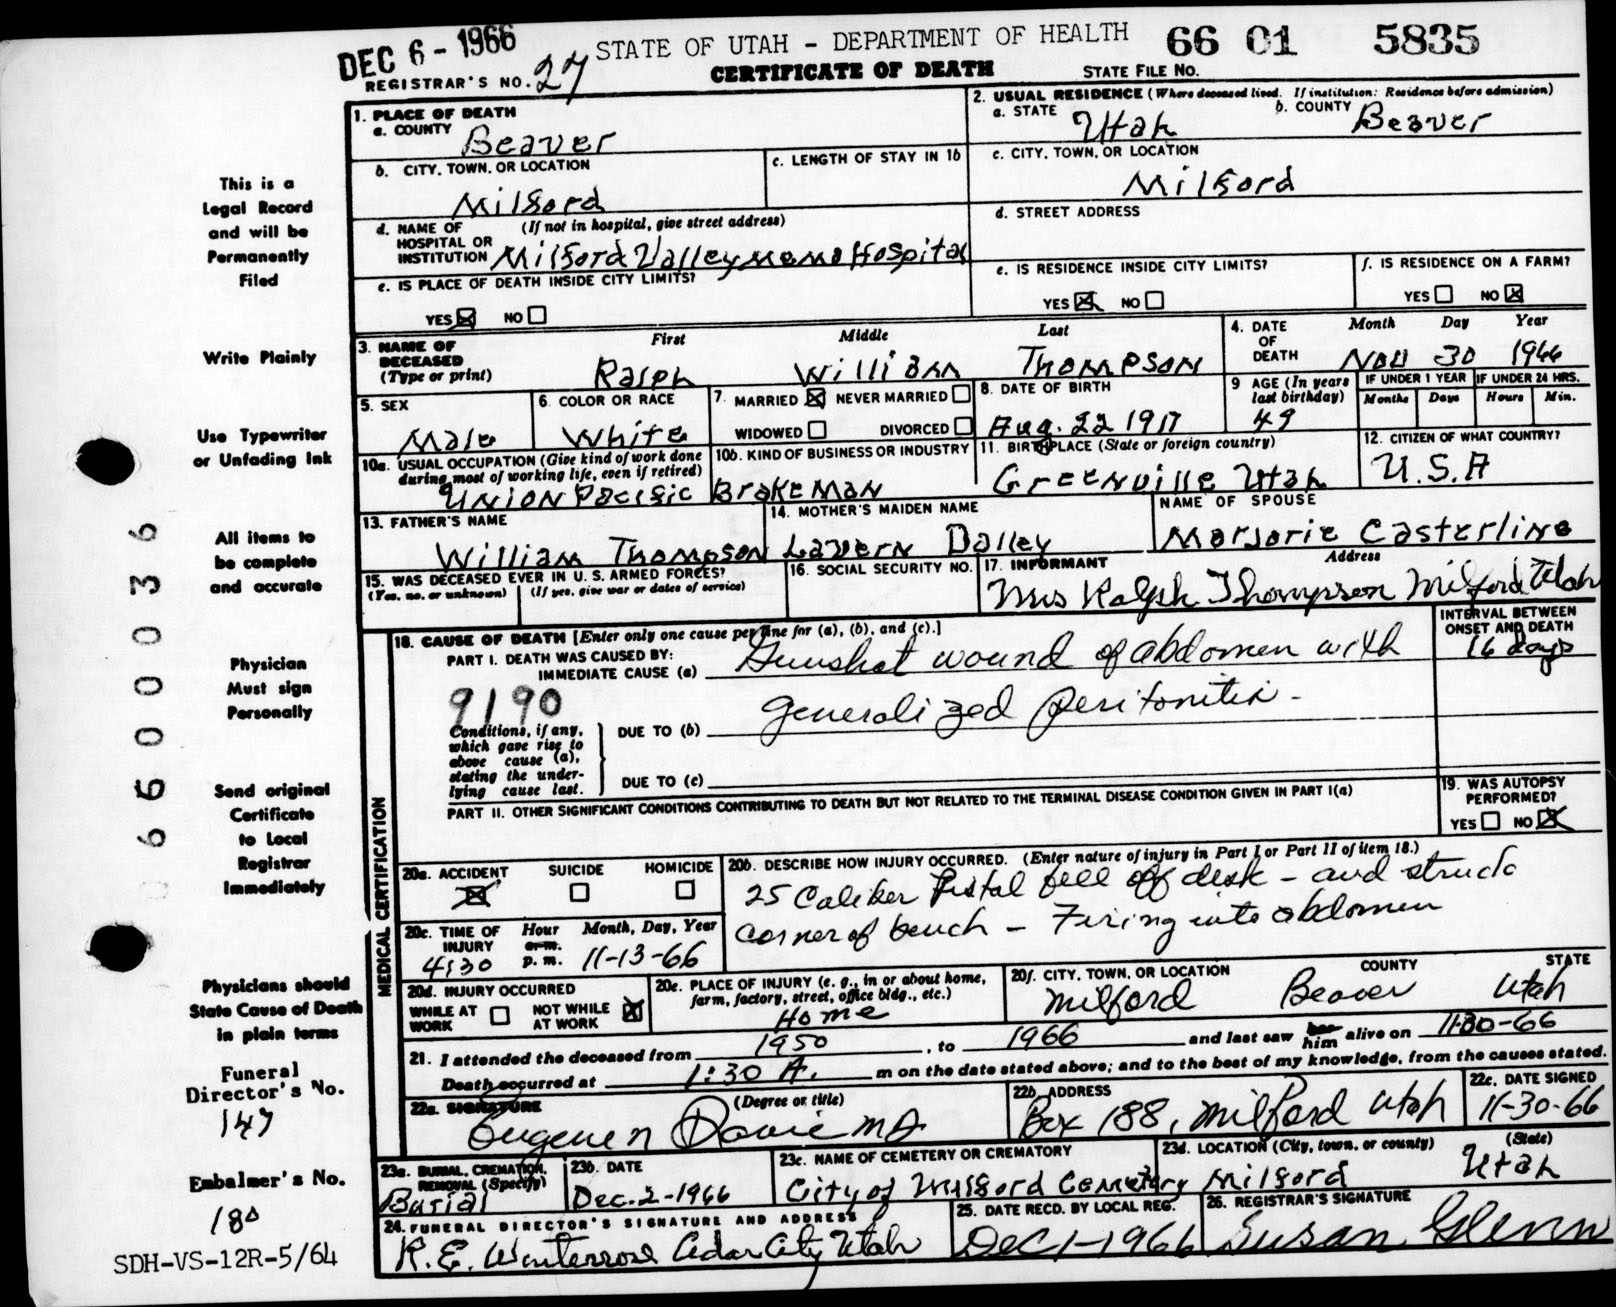 DEC 6 - 1966
STATE OF UTAH - DEPARTMENT OF HEALTH 66 01 5835
REGISTRAR'S NO. 27 CERTIFICATE OF DEATH STATE FILE NO.
This is a
Legal Record
and will be
Permanently
Filed
Write Plainly
Use Typewriter
or Unfading Ink
All items to
be complete
and accurate
Physician
Must sign
Personally
Send original
Certificate
to Local
Registrar
Immediately
Physicians should
State Cause of Death
in plain terms
Funeral
Director's No.
147
Embalmer's No.
180
SDH-VS-12R-5/64
6600036
1. PLACE OF DEATH
a. COUNTY Beaver
2. USUAL RESIDENCE (Where deceased lived. If institution: Residence before admission)
a. STATE Utah b. COUNTY Beaver
b. CITY, TOWN, OR LOCATION Milford
c. LENGTH OF STAY IN 1b
c. CITY, TOWN, OR LOCATION Milford
d. NAME OF (If not in hospital, give street address)
HOSPITAL OR
INSTITUTION Milford Valley Memo Hospital
d. STREET ADDRESS
e. IS PLACE OF DEATH INSIDE CITY LIMITS?
YES ☒ NO ☐
e. IS RESIDENCE INSIDE CITY LIMITS?
YES ☒ NO ☐
f. IS RESIDENCE ON A FARM?
YES ☐ NO ☒
3. NAME OF DECEASED (Type or print)
First Middle Last
Ralph William Thompson
4. DATE OF DEATH Month Day Year
Nov 30 1966
5. SEX Male
6. COLOR OR RACE White
7. MARRIED ☒ NEVER MARRIED ☐
WIDOWED ☐ DIVORCED ☐
8. DATE OF BIRTH Aug. 22 1917
9 AGE (In years last birthday) 49
IF UNDER 1 YEAR Months Days
IF UNDER 24 HRS. Hours Min.
10a. USUAL OCCUPATION (Give kind of work done during most of working life, even if retired)
10b. KIND OF BUSINESS OR INDUSTRY
Union Pacific Brakeman
11. BIRTHPLACE (State or foreign country) Greenville Utah
12. CITIZEN OF WHAT COUNTRY? U.S.A
13. FATHER'S NAME William Thompson
14. MOTHER'S MAIDEN NAME Lavern Dalley
NAME OF SPOUSE Marjorie Casterline
15. WAS DECEASED EVER IN U. S. ARMED FORCES?
(Yes, no, or unknown) (If yes, give war or dates of service)
16. SOCIAL SECURITY NO.
17. INFORMANT Address
Mrs Ralph Thompson Milford Utah
MEDICAL CERTIFICATION
18. CAUSE OF DEATH [Enter only one cause per line for (a), (b), and (c).]
INTERVAL BETWEEN ONSET AND DEATH
PART I. DEATH WAS CAUSED BY:
IMMEDIATE CAUSE (a) Gunshot wound of abdomen with 16 days
9190
Conditions, if any, which gave rise to above cause (a), stating the underlying cause last.
DUE TO (b) generalized peritonitis -
DUE TO (c)
PART II. OTHER SIGNIFICANT CONDITIONS CONTRIBUTING TO DEATH BUT NOT RELATED TO THE TERMINAL DISEASE CONDITION GIVEN IN PART I(a)
19. WAS AUTOPSY PERFORMED?
YES ☐ NO ☒
20a. ACCIDENT ☒ SUICIDE ☐ HOMICIDE ☐
20b. DESCRIBE HOW INJURY OCCURRED. (Enter nature of injury in Part I or Part II of item 18.)
25 Caliber Pistol fell off desk - and struck
corner of bench - Firing into abdomen
20c. TIME OF INJURY Hour Month, Day, Year
a.m.
4:30 p.m. 11-13-66
20d. INJURY OCCURRED
WHILE AT WORK ☐ NOT WHILE AT WORK ☒
20e. PLACE OF INJURY (e. g., in or about home, farm, factory, street, office bldg., etc.)
Home
20f. CITY, TOWN, OR LOCATION COUNTY STATE
Milford Beaver Utah
21. I attended the deceased from 1950, to 1966 and last saw her him alive on 11-30-66
Death occurred at 1:30 A. m on the date stated above; and to the best of my knowledge, from the causes stated.
22a. SIGNATURE (Degree or title)
Eugene N Davie MD
22b. ADDRESS
Box 188, Milford Utah
22c. DATE SIGNED
11-30-66
23a. BURIAL, CREMATION, REMOVAL (Specify) Burial
23b. DATE Dec. 2-1966
23c. NAME OF CEMETERY OR CREMATORY City of Milford Cemetery
23d. LOCATION (City, town, or county) (State)
Milford Utah
24. FUNERAL DIRECTOR'S SIGNATURE AND ADDRESS
R.E. Winterrose Cedar City Utah
25. DATE RECD. BY LOCAL REG.
Dec 1-1966
26. REGISTRAR'S SIGNATURE
Susan Glenn